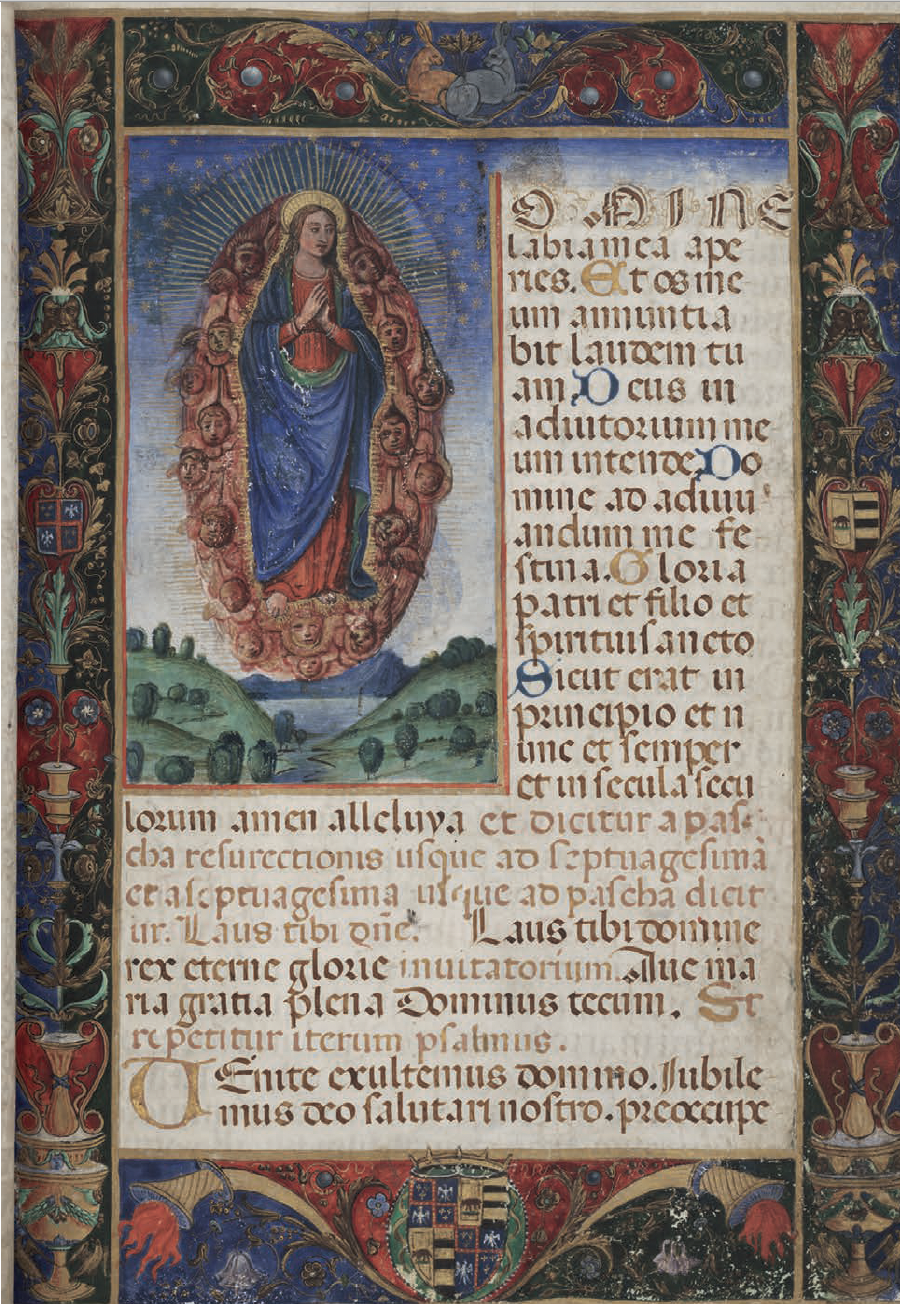 DOMINE
labia mea ape
ries. Et os me
um annuntia
bit laudem tu
am Deus in
adiutorium me
um intende Do
mine ad adiuu
andum me fe
stina. Gloria
patri et filio et
spiritui sancto
Sicut erat in
principio et n
unc et semper
et in secula secu
lorum amen alleluya et dicitur a pas
cha resurectionis usque ad septuagesimā
et a septuagesima usque ad pascha dicit
ur. Laus tibi dn̄e. Laus tibi domine
rex eterne glorie inuitatorium. Aue ma
ria gratia plena Dominus tecum. Et
repetitur iterum psalmus.
VEnite exultemus domino. Iubile
mus deo salutari nostro. preoccupe